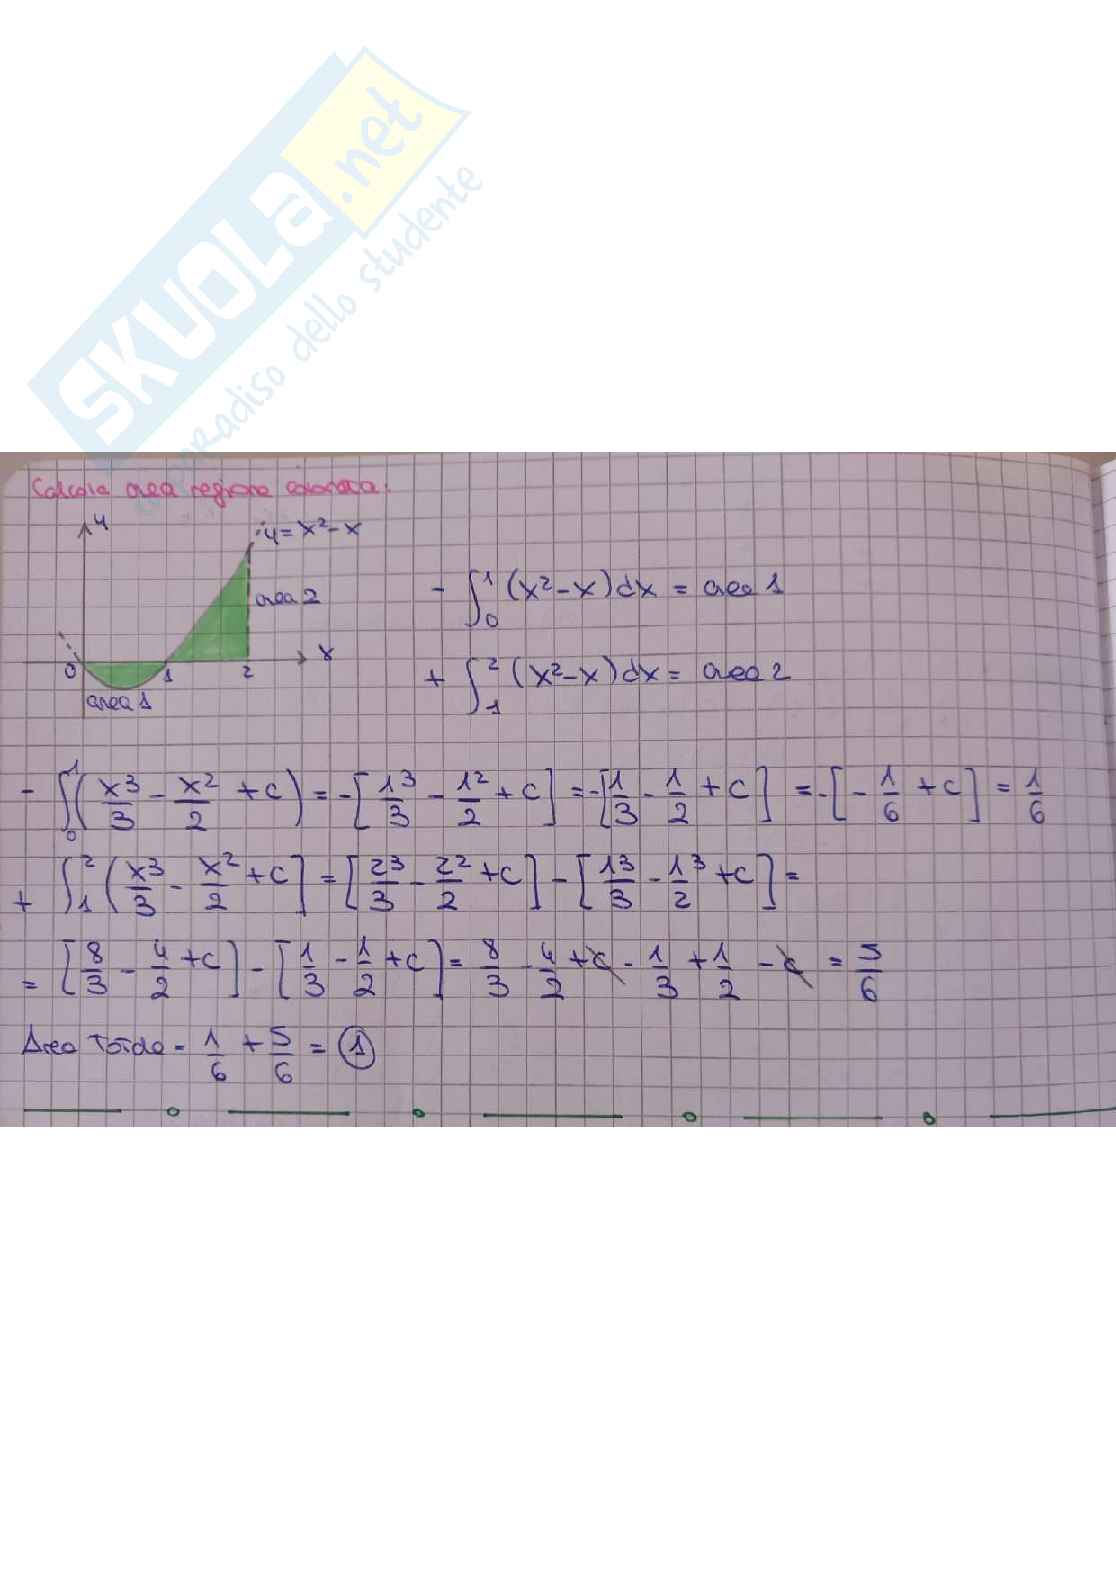 SKUOLA.net
paradiso dello studente
Calcola area regione colorata:
y
y = x² - x
area 2
- ∫₀¹ (x² - x) dx = area 1
0 1 2 x
area 1
+ ∫₁² (x² - x) dx = area 2
- ∫₀¹ (x³/3 - x²/2 + c) = - [1³/3 - 1²/2 + c] = - [1/3 - 1/2 + c] = - [- 1/6 + c] = 1/6
+ ∫₁² (x³/3 - x²/2 + c] = [2³/3 - 2²/2 + c] - [1³/3 - 1³/2 + c] =
= [8/3 - 4/2 + c] - [1/3 - 1/2 + c] = 8/3 - 4/2 + c - 1/3 + 1/2 - c = 5/6
Area Totale = 1/6 + 5/6 = 1